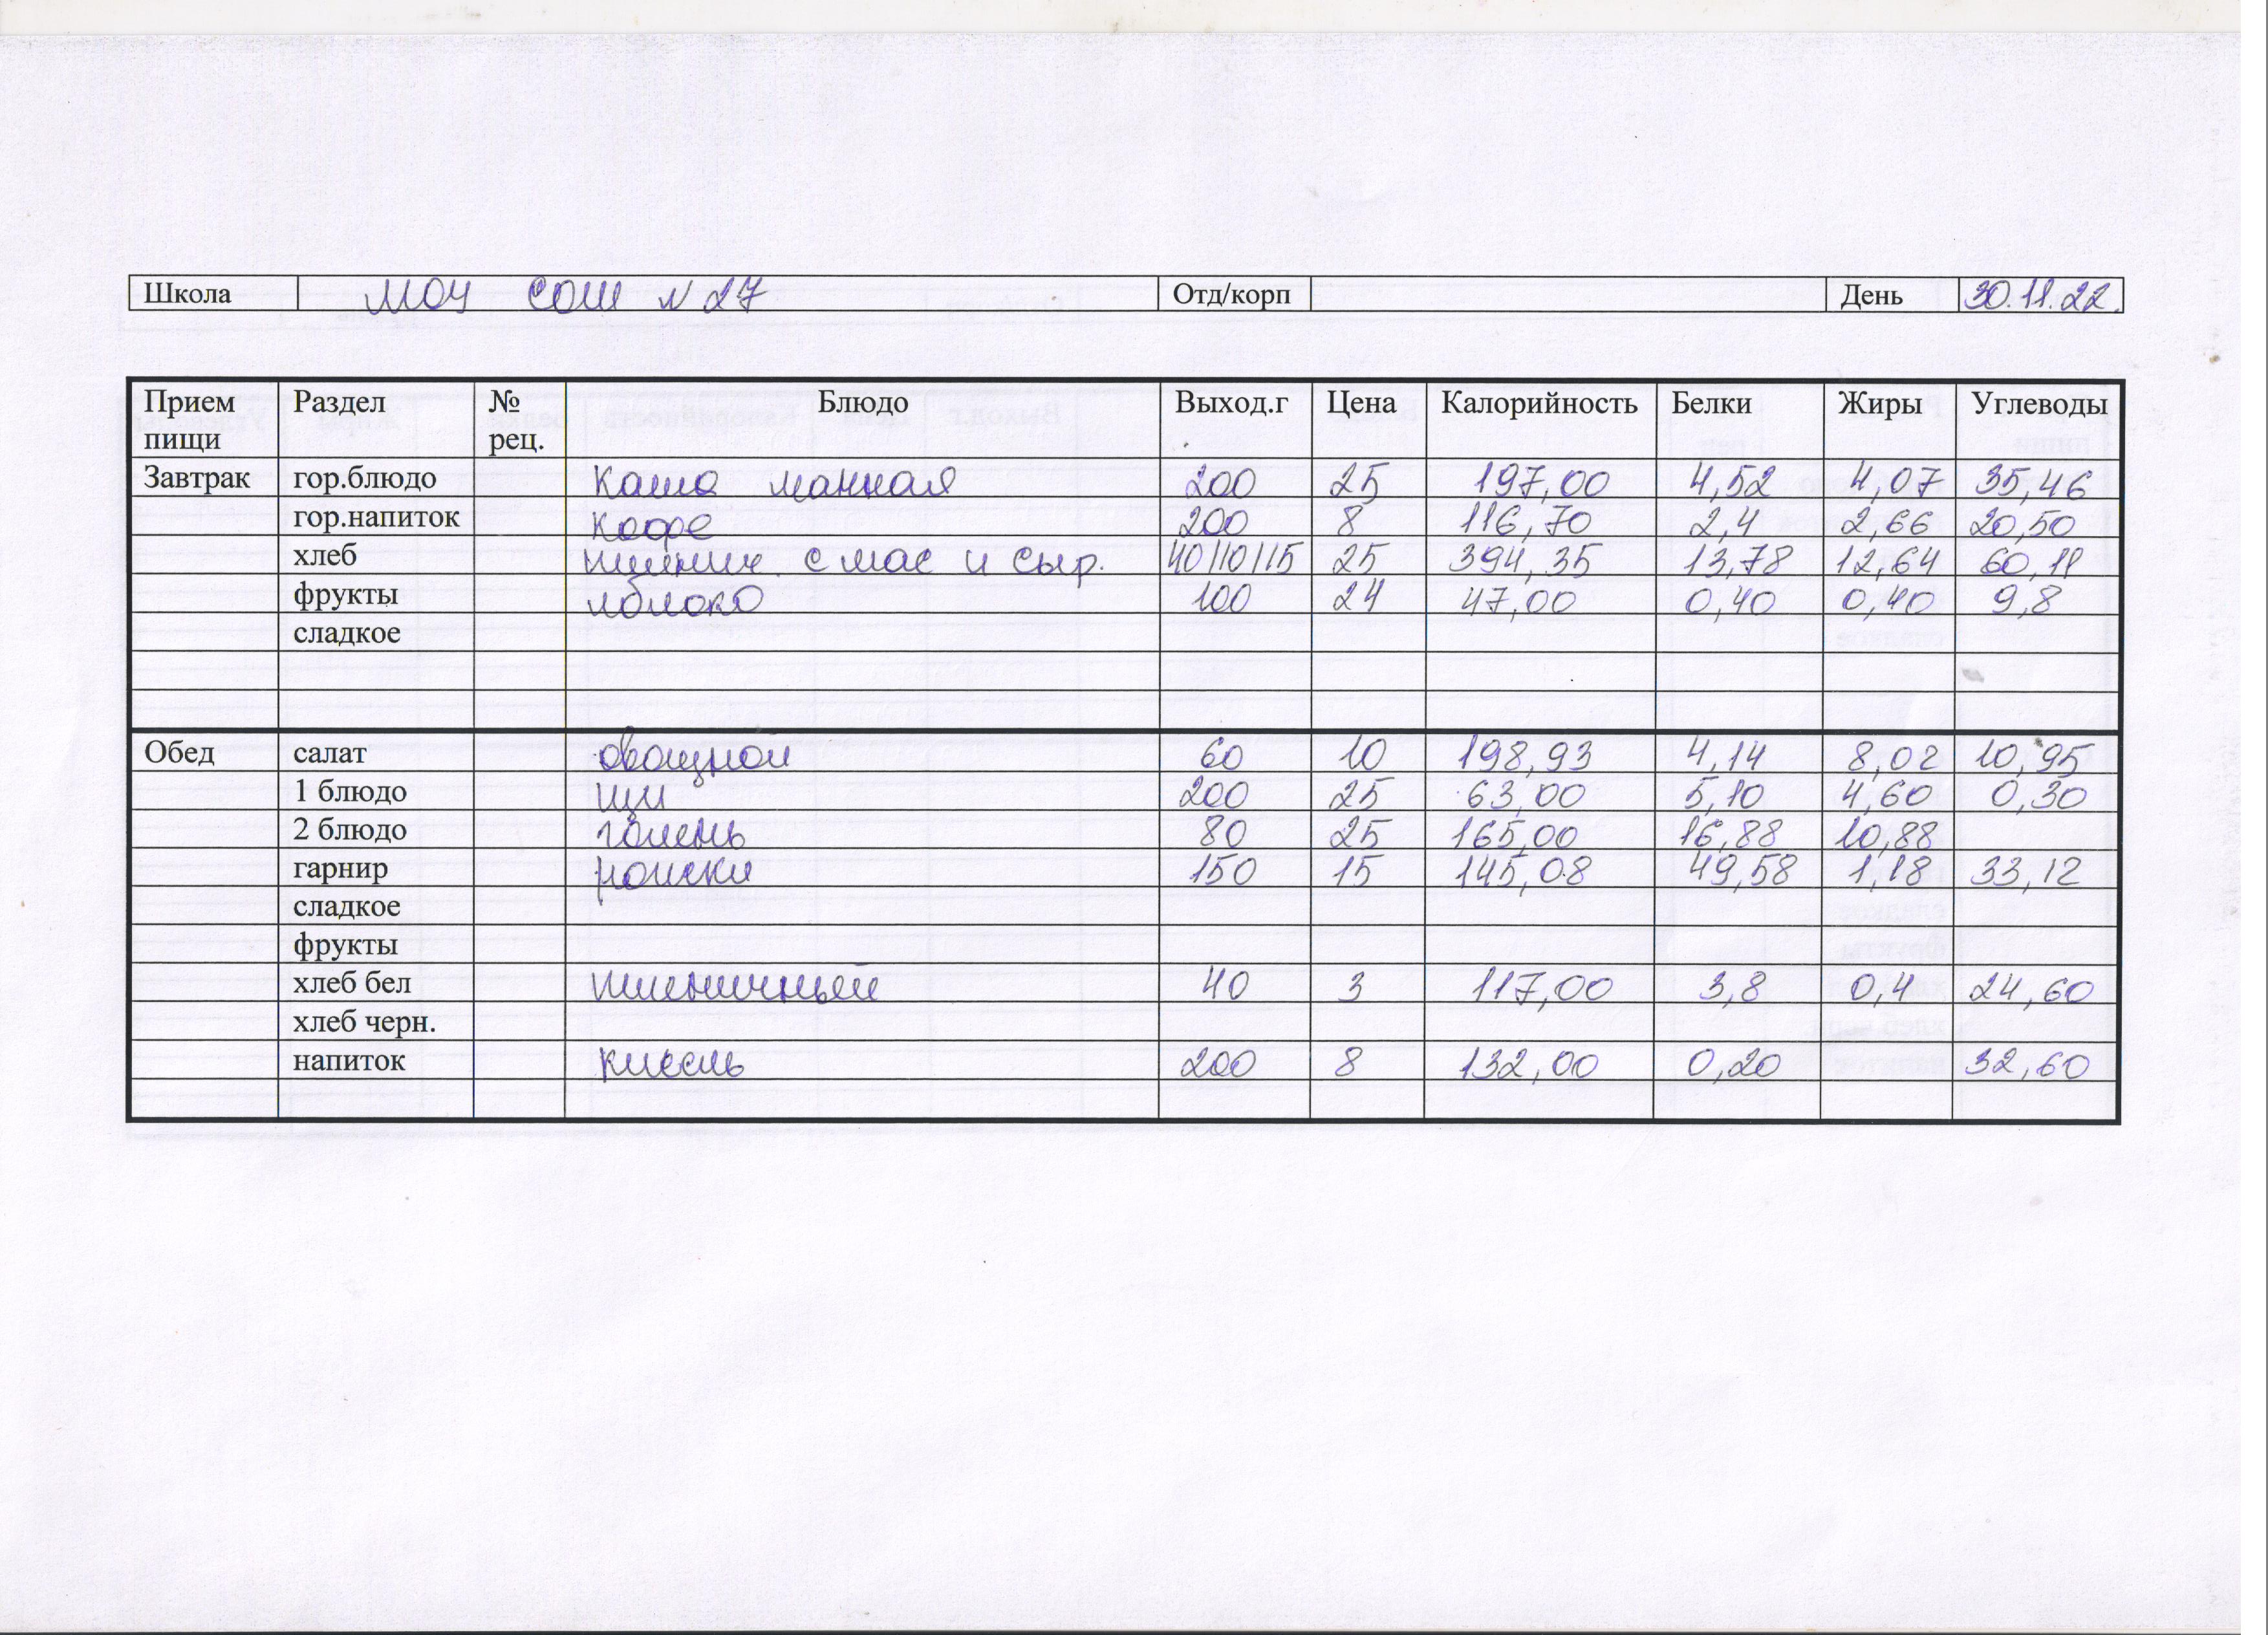 Школа МОУ СОШ N 27 Отд/корп День 30.11.22.
Прием пищи Раздел № рец. Блюдо Выход.г Цена Калорийность Белки Жиры Углеводы
Завтрак гор.блюдо Каша манная 200 25 197,00 4,52 4,07 35,46
гор.напиток Кофе 200 8 116,70 2,4 2,66 20,50
хлеб пшенич. с мас и сыр. 40/10/15 25 394,35 13,78 12,64 60,11
фрукты яблоко 100 24 47,00 0,40 0,40 9,8
сладкое
Обед салат овощной 60 10 198,93 4,14 8,02 10,95
1 блюдо щи 200 25 63,00 5,10 4,60 0,30
2 блюдо голень 80 25 165,00 16,88 10,88
гарнир рожки 150 15 145,08 49,58 1,18 33,12
сладкое
фрукты
хлеб бел пшеничный 40 3 117,00 3,8 0,4 24,60
хлеб черн.
напиток кисель 200 8 132,00 0,20 32,60